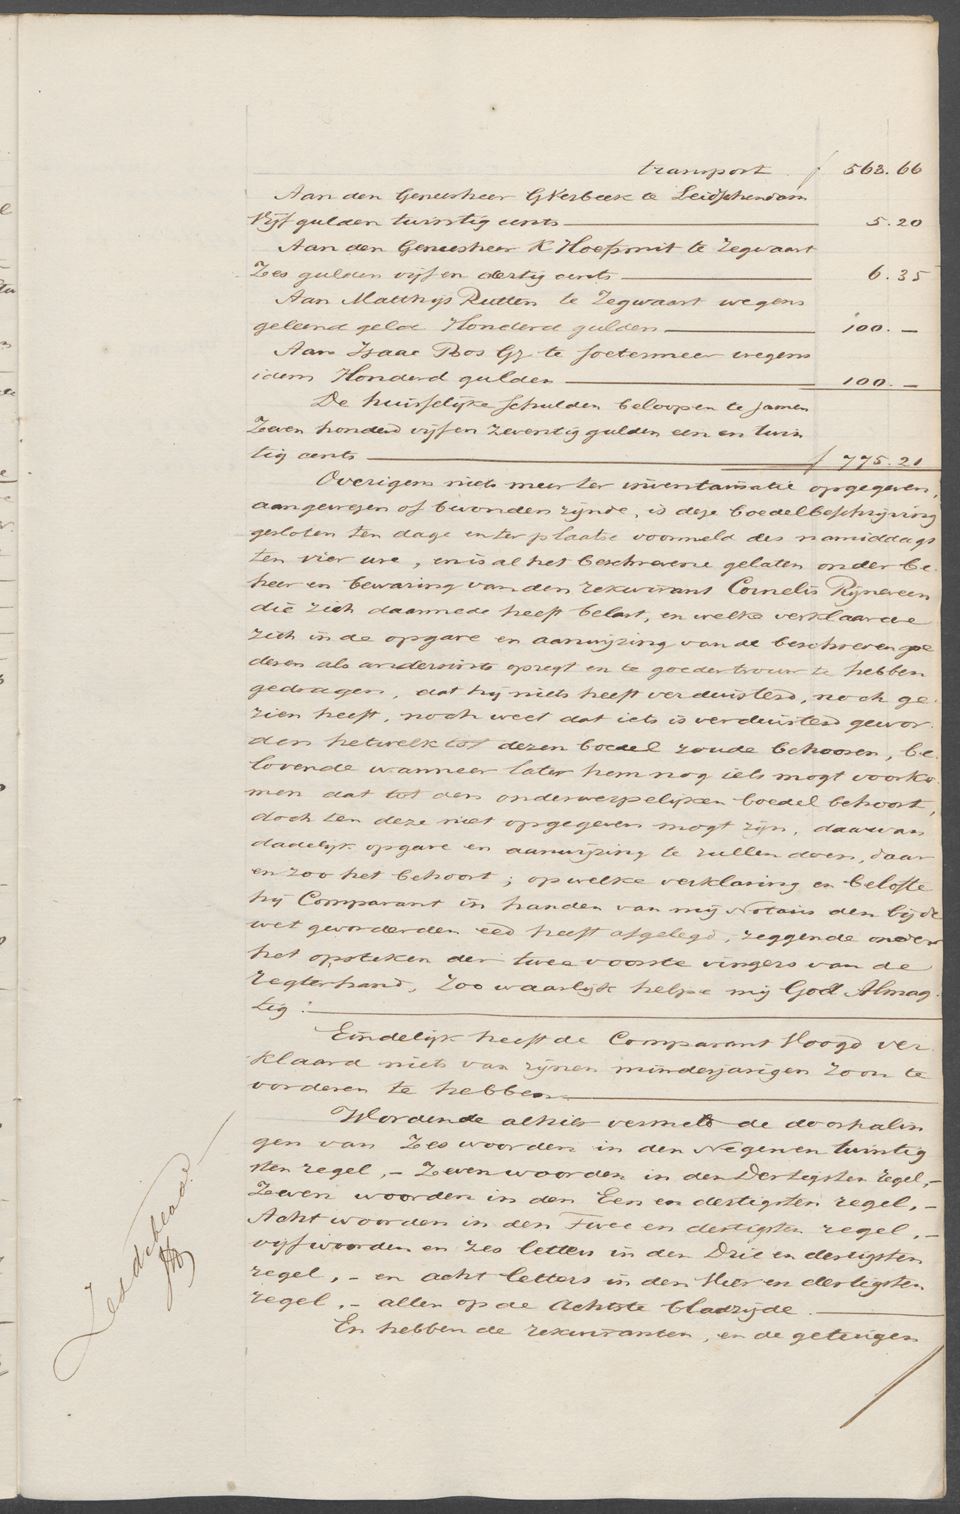 transport f 563.66
Aan den Geneesheer G Verbeek te Leidschendam
Vijf gulden twintig cents 5.20
Aan den Geneesheer K Hoefsmit te Zegwaart
Zes gulden vijf en dertig cents 6.35
Aan Matthijs Rutten te Zegwaart wegens
geleend geld Honderd gulden 100.-
Aan Izaac Bos Gz te Soetermeer wegens
idem Honderd gulden 100.-
De huisselijke schulden beloopen te samen
Zeven honderd vijf en zeventig gulden een en twin
tig cents f 775.21
Overigens niets meer ter inventarisatie opgegeven,
aangewezen of bevonden zijnde, is deze boedelbeschrijving
gesloten ten dage en ter plaatse voormeld des namiddags
ten vier ure, en is al het beschrevene gelaten onder be-
heer en bewaring van den rekwirant Cornelis Rijneveen
die zich daarmede heeft belast, en welke verklaarde
zich in de opgave en aanwijzing van de beschreven goe
deren als anderzints opregt en te goedertrouw te hebben
gedragen, dat hij niets heeft verduisterd, noch ge-
zien heeft, noch weet dat iets is verduisterd gewor-
den hetwelk tot dezen boedel zoude behooren, be-
lovende wanneer later hem nog iets mogt voorko-
men dat tot den onderwerpelijken boedel behoort,
doch ten deze niet opgegeven mogt zijn, daarvan
dadelijk opgave en aanwijzing te zullen doen, daar
en zoo het behoort; op welke verklaring en belofte
hij Comparant in handen van mij Notaris den bij de
wet gevorderden eed heeft afgelegd, zeggende onder
het opsteken der twee voorste vingers van de
regterhand, Zoo waarlijk helpe mij God Almag-
tig!
Eindelijk heeft de Comparant Hoogd ver-
klaard niets van zijnen minderjarigen zoon te
vorderen te hebben.
Wordende alhier vermeld de doorhalin
gen van Zes woorden in den Negen en twintig
sten regel,- Zeven woorden in den Dertigsten regel,-
Zeven woorden in den Een en dertigsten regel,-
Acht woorden in den Twee en dertigsten regel,-
vijf woorden en zes letters in den Drie en dertigsten
regel,- en acht letters in den Vier en dertigsten
regel,- allen op de Achtste bladzijde.
En hebben de rekwiranten, en de getuigen
Zesde blad.